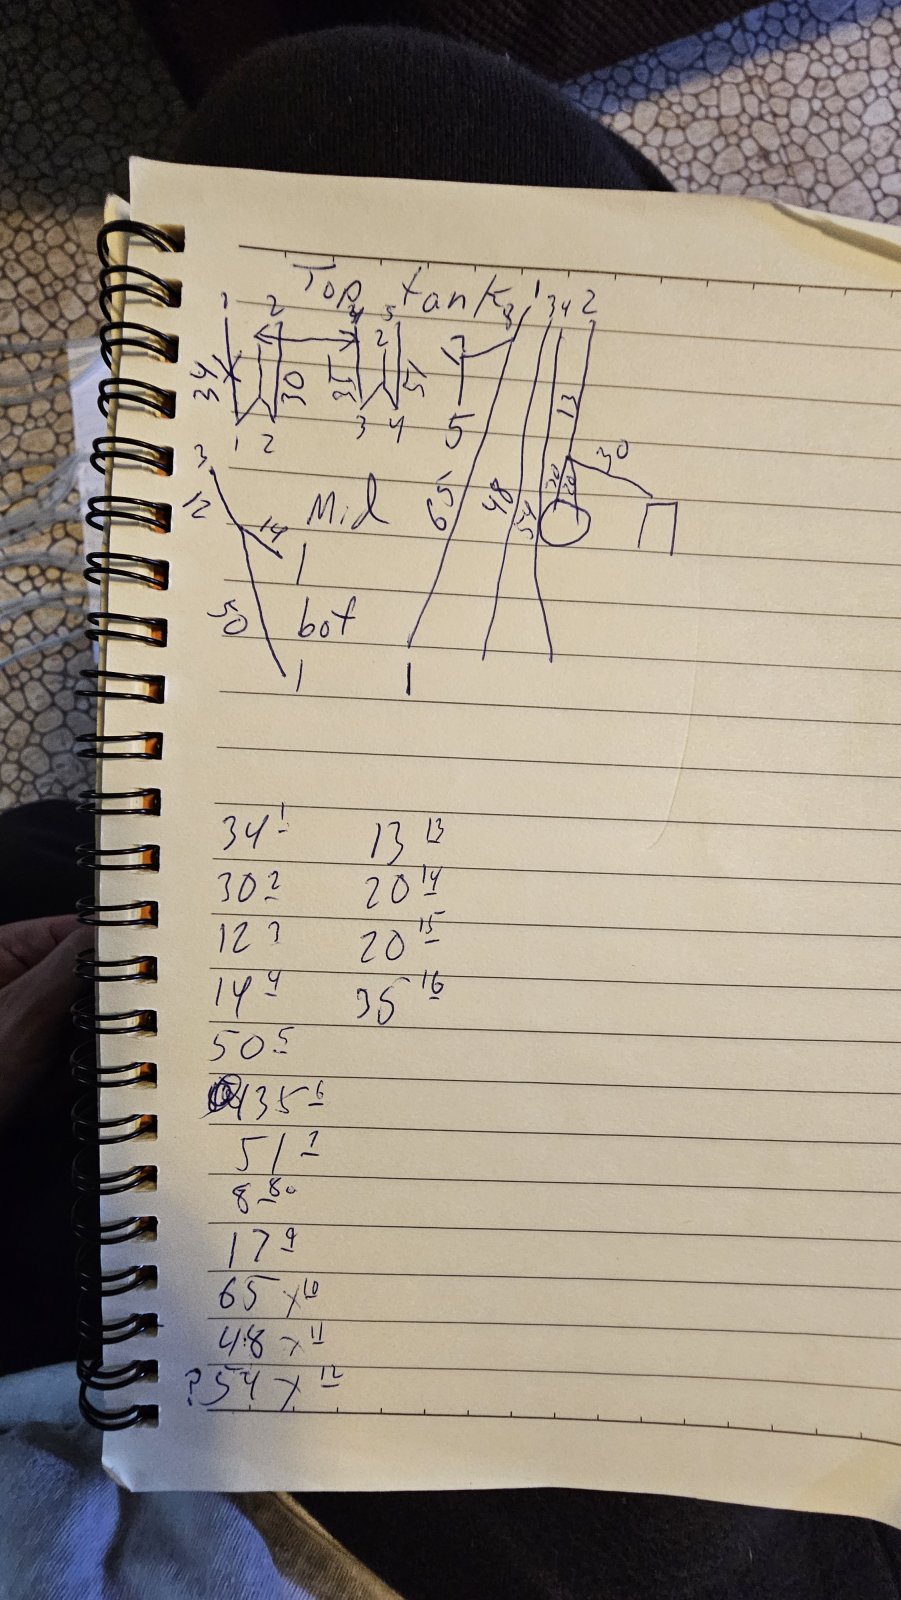 Top tank
1 2 4 5 8 1 3 4 2
34 30 35 2 51 17 13
1 2 3 4 5 30
3
12 14 Mid 65 48 54 20 20
1
50 bot
1 1
34 1 13 13
30 2 20 14
12 3 20 15
14 4 35 16
50 5
435 6
51 7
8 8
17 9
65 x 10
48 x 11
? 54 x 12